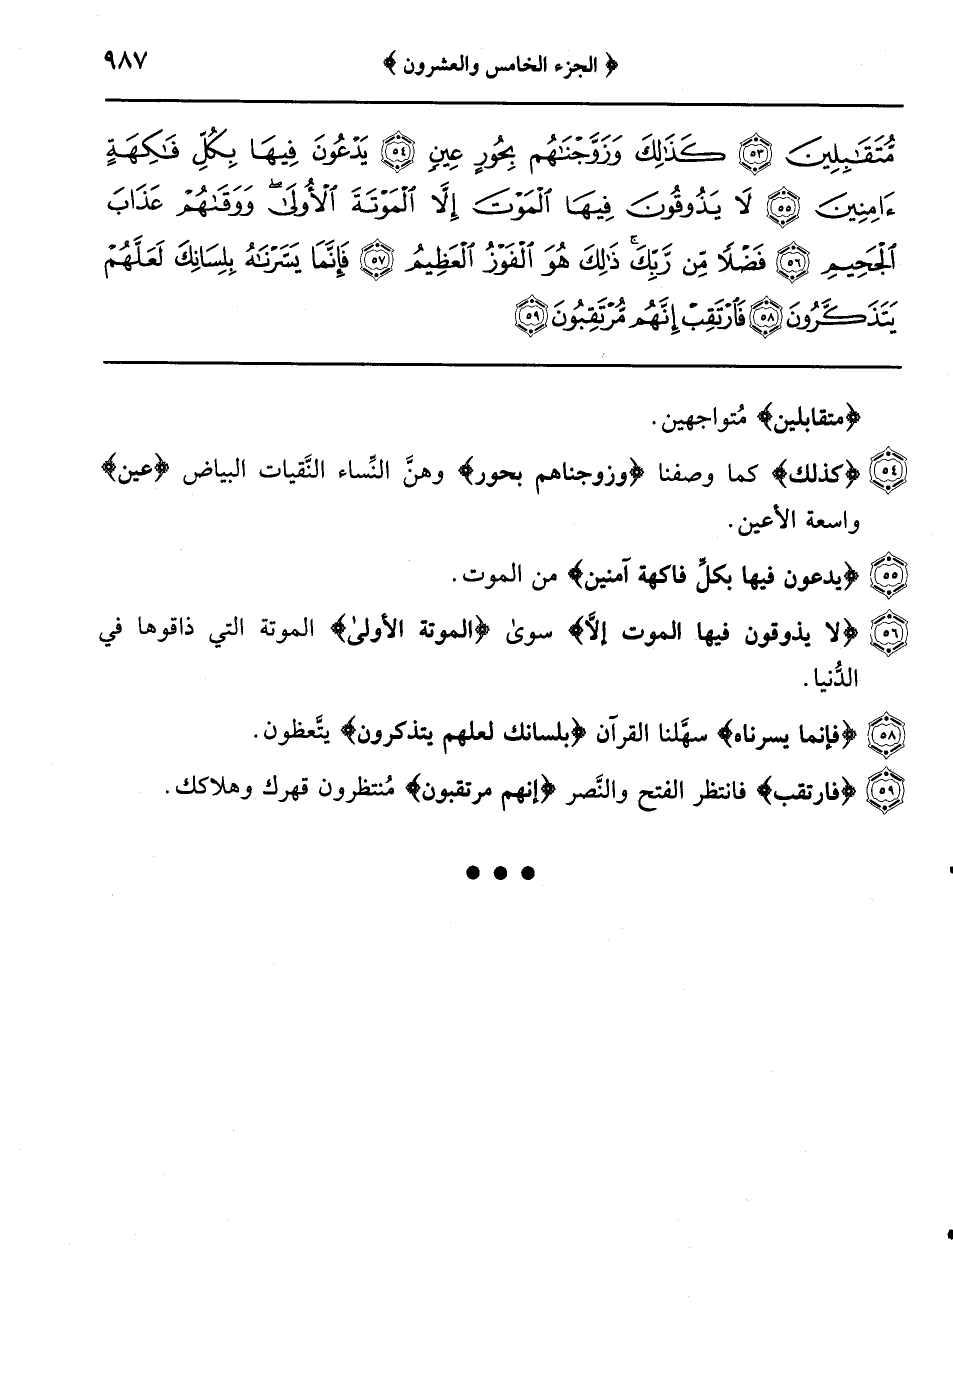 ﴿ الجزء الخامس والعشرون ﴾ ٩٨٧
مُّتَقَٰبِلِينَ ٥٣ كَذَٰلِكَ وَزَوَّجْنَٰهُم بِحُورٍ عِينٍ ٥٤ يَدْعُونَ فِيهَا بِكُلِّ فَٰكِهَةٍ
ءَامِنِينَ ٥٥ لَا يَذُوقُونَ فِيهَا ٱلْمَوْتَ إِلَّا ٱلْمَوْتَةَ ٱلْأُولَىٰ ۖ وَوَقَىٰهُمْ عَذَابَ
ٱلْجَحِيمِ ٥٦ فَضْلًا مِّن رَّبِّكَ ۚ ذَٰلِكَ هُوَ ٱلْفَوْزُ ٱلْعَظِيمُ ٥٧ فَإِنَّمَا يَسَّرْنَٰهُ بِلِسَانِكَ لَعَلَّهُمْ
يَتَذَكَّرُونَ ٥٨ فَٱرْتَقِبْ إِنَّهُم مُّرْتَقِبُونَ ٥٩
﴿متقابلين﴾ مُتواجهين.
٥٤ ﴿كذلك﴾ كما وصفنا ﴿وزوجناهم بحور﴾ وهنَّ النِّساء النَّقيات البياض ﴿عين﴾
واسعة الأعين.
٥٥ ﴿يدعون فيها بكلِّ فاكهة آمنين﴾ من الموت.
٥٦ ﴿لا يذوقون فيها الموت إلاَّ﴾ سوىٰ ﴿الموتة الأولىٰ﴾ الموتة التي ذاقوها في
الدُّنيا.
٥٨ ﴿فإنما يسرناه﴾ سهَّلنا القرآن ﴿بلسانك لعلهم يتذكرون﴾ يتَّعظون.
٥٩ ﴿فارتقب﴾ فانتظر الفتح والنَّصر ﴿إنهم مرتقبون﴾ مُنتظرون قهرك وهلاكك.
● ● ●